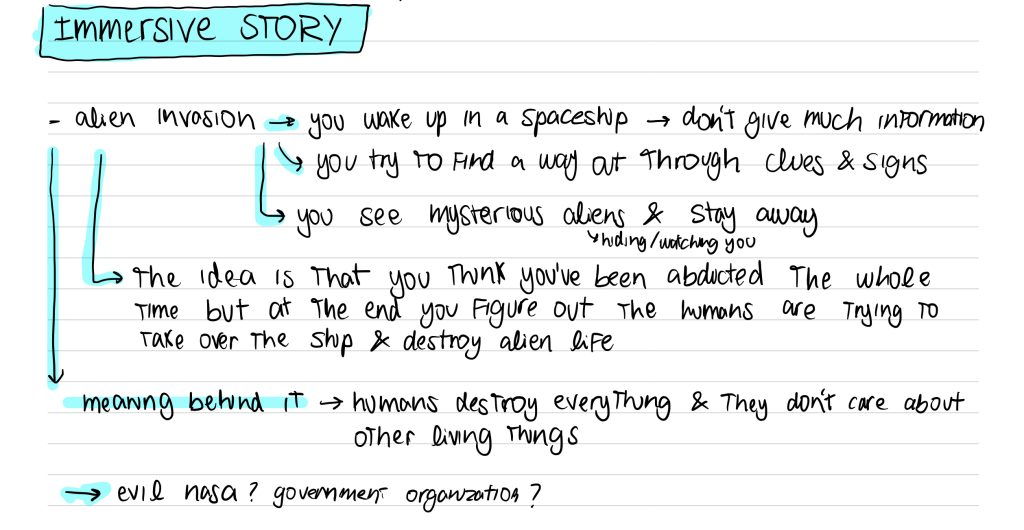 Immersive STORY
- alien invasion → you wake up in a spaceship → don't give much information
→ you try to find a way out through clues & signs
→ you see mysterious aliens & stay away
↳ hiding/watching you
→ The idea is that you think you've been abducted the whole
time but at the end you figure out the humans are trying to
take over the ship & destroy alien life
meaning behind it → humans destroy everything & they don't care about
other living things
→ evil nasa? government organization?